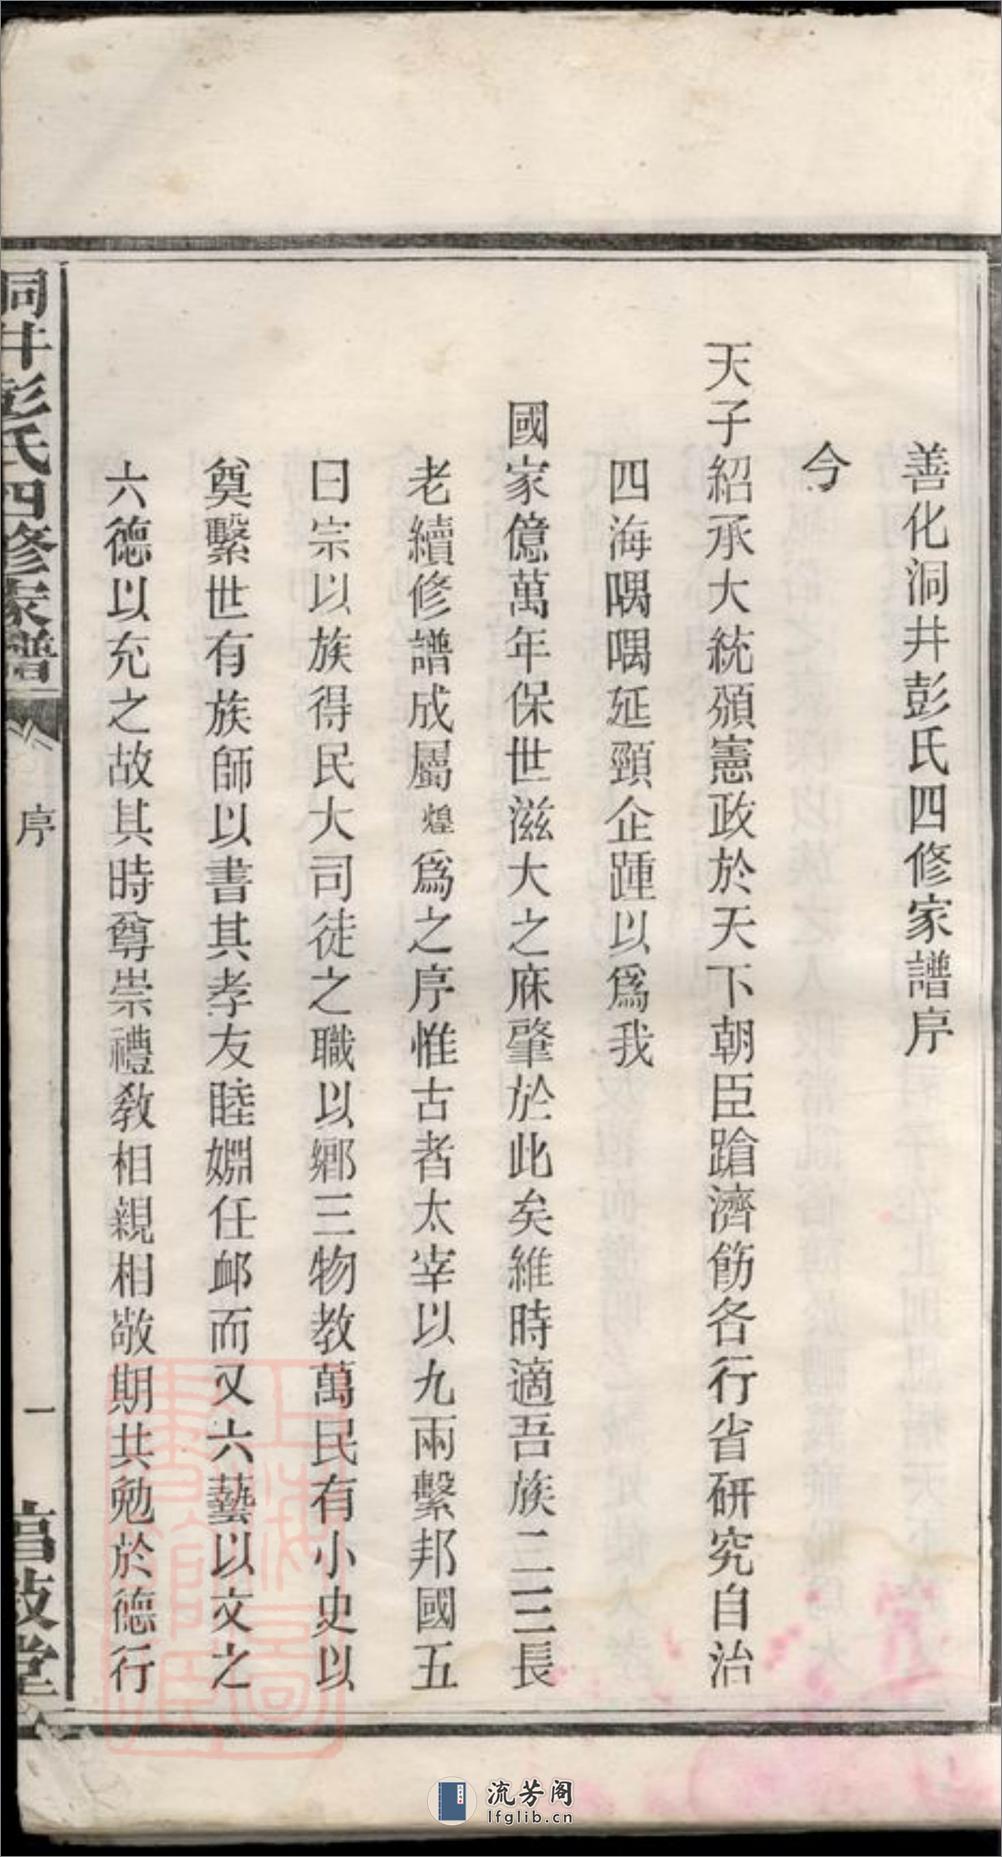 善化洞井彭氏四修家譜序
今
天子紹承大統頒憲政於天下朝臣蹌濟飭各行省研究自治
四海喁喁延頸企踵以爲我
國家億萬年保世滋大之庥肇於此矣維時適吾族二三長
老續修譜成屬煌爲之序惟古者太宰以九兩繫邦國五
曰宗以族得民大司徒之職以鄉三物教萬民有小史以
奠繫世有族師以書其孝友睦婣任䘏而又六藝以文之
六德以充之故其時尊崇禮敎相親相敬期共勉於德行
洞井彭氏四修家譜
序
一
上海圖書館藏
流芳阁
lfglib.cn